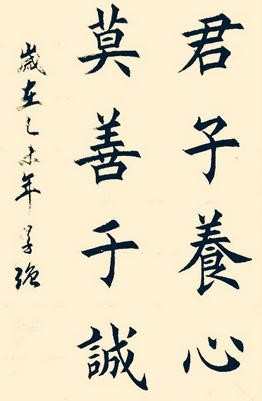 君子養心
莫善于誠
歲在乙未年